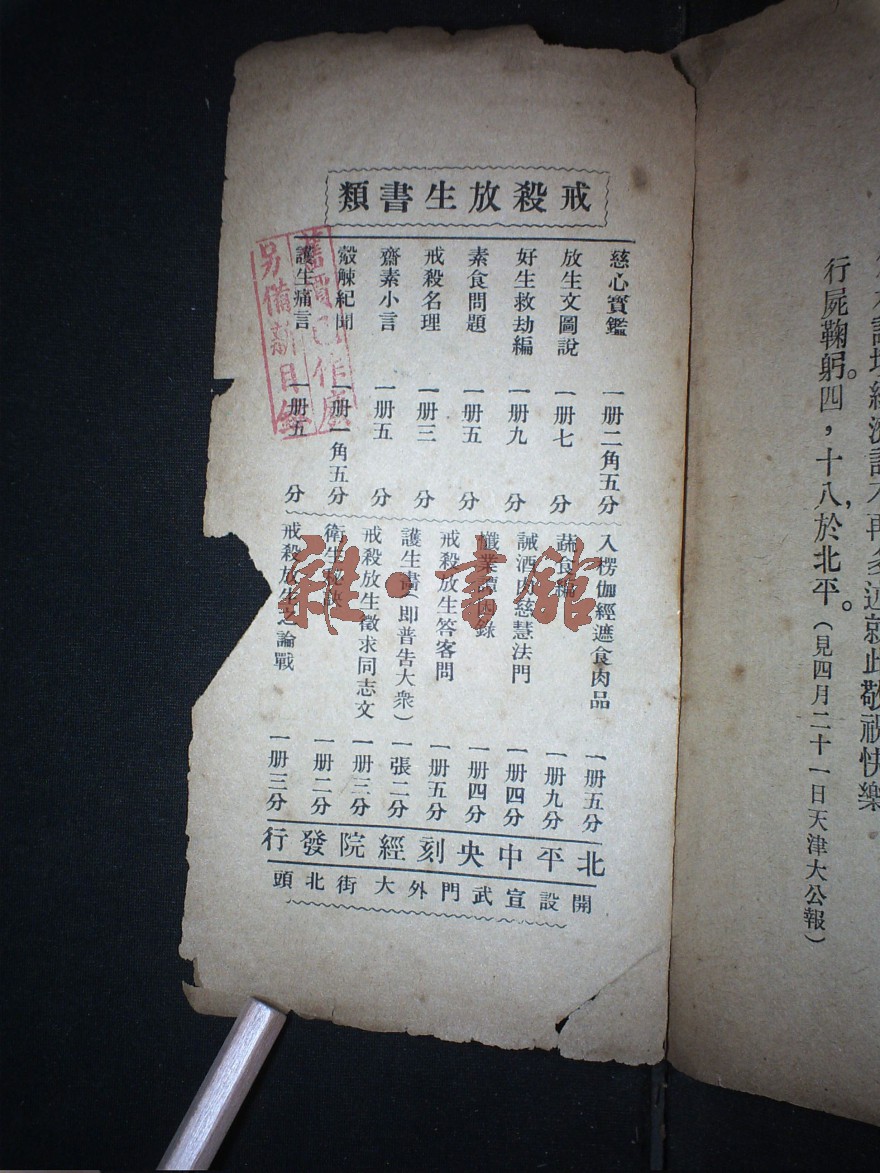 戒殺放生書類
慈心寳鑑 一册二角五分
放生文圖說 一册七分
好生救劫編 一册九分
素食問題 一册五分
戒殺名理 一册三分
齋素小言 一册五分
觳觫紀聞 一册一角五分
護生痛言 一册五分
入楞伽經遮食肉品 一册五分
蔬食 一册九分
誡酒肉慈慧法門 一册四分
懺業譚 錄 一册四分
戒殺放生答客問 一册五分
護生畫(即普告大衆) 一張二分
戒殺放生徵求同志文 一册三分
衛生 一册二分
戒殺放生之論戰 一册三分
北平中央刻經院發行
開設宣武門外大街北頭
舊價已作廢
另備新目錄
雜·書館
再多述就此敬祝快樂
行屍鞠躬。四,十八,於北平。(見四月二十一日天津大公報)